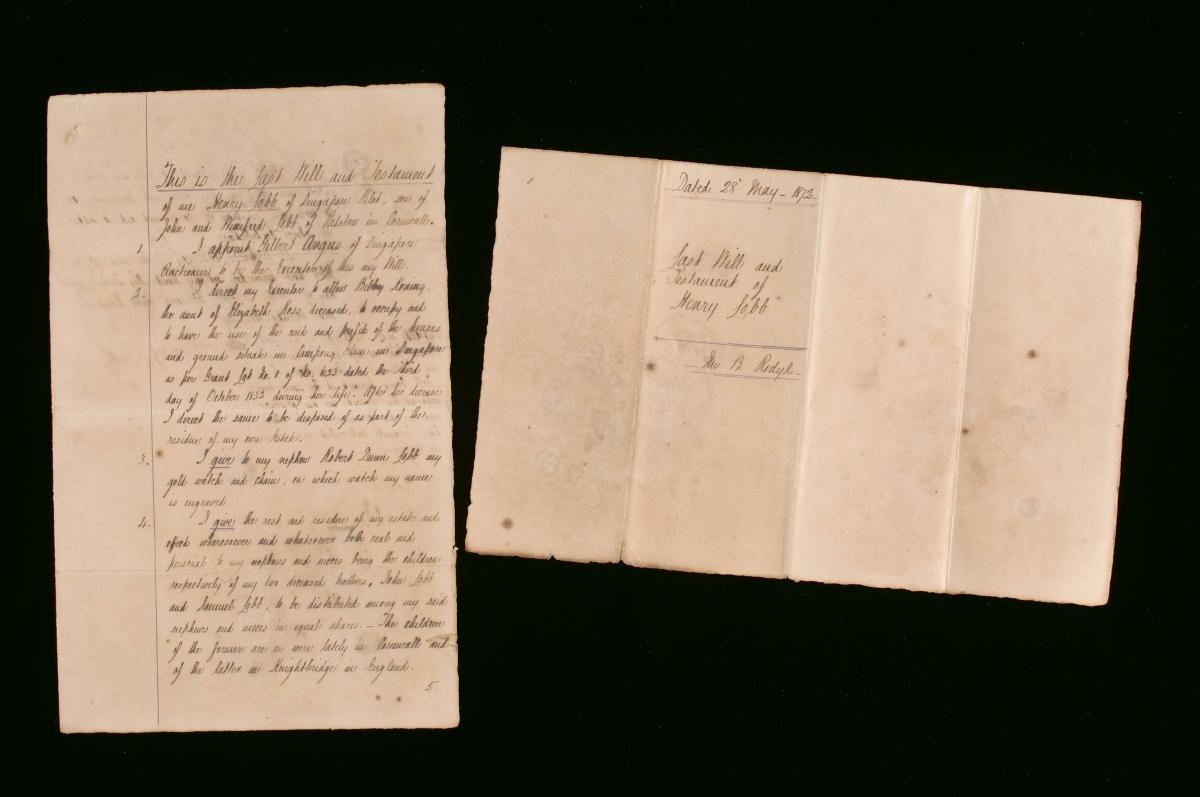 This is the Last Will and Testament
of me Henry Lobb of Singapore Pilot, son of
John and Winifred Lobb of Helston in Cornwall.
1. I appoint Gilbert Angus of Singapore
Auctioneer to be the Executor of this my Will.
2. I direct my Executor to allow Bibby
the aunt of Elizabeth Ross deceased, to occupy and
to have the use of the rents and profits of the houses
and ground situate in Campong Glam in Singapore
as per Grant Lot No. 1 of No. 633 dated the Third
day of October 1832 during her life. After her decease
I direct the same to be disposed of as part of the
residue of my own Estate.
3. I give to my nephew Robert Dunn Lobb my
gold watch and chain, on which watch my name
is engraved.
4. I give the rest and residue of my estate and
effects wheresoever and whatsoever both real and
personal to my nephews and nieces being the children
respectively of my two deceased brothers, John Lobb
and Samuel Lobb, to be distributed among my said
nephews and nieces in equal shares. – The children
of the former are or were lately in Cornwall and
of the latter in Knightbridge in England.
5
Dated 28 May – 1872
Last Will and
Testament of
Henry Lobb
Mr. B. Rodyk